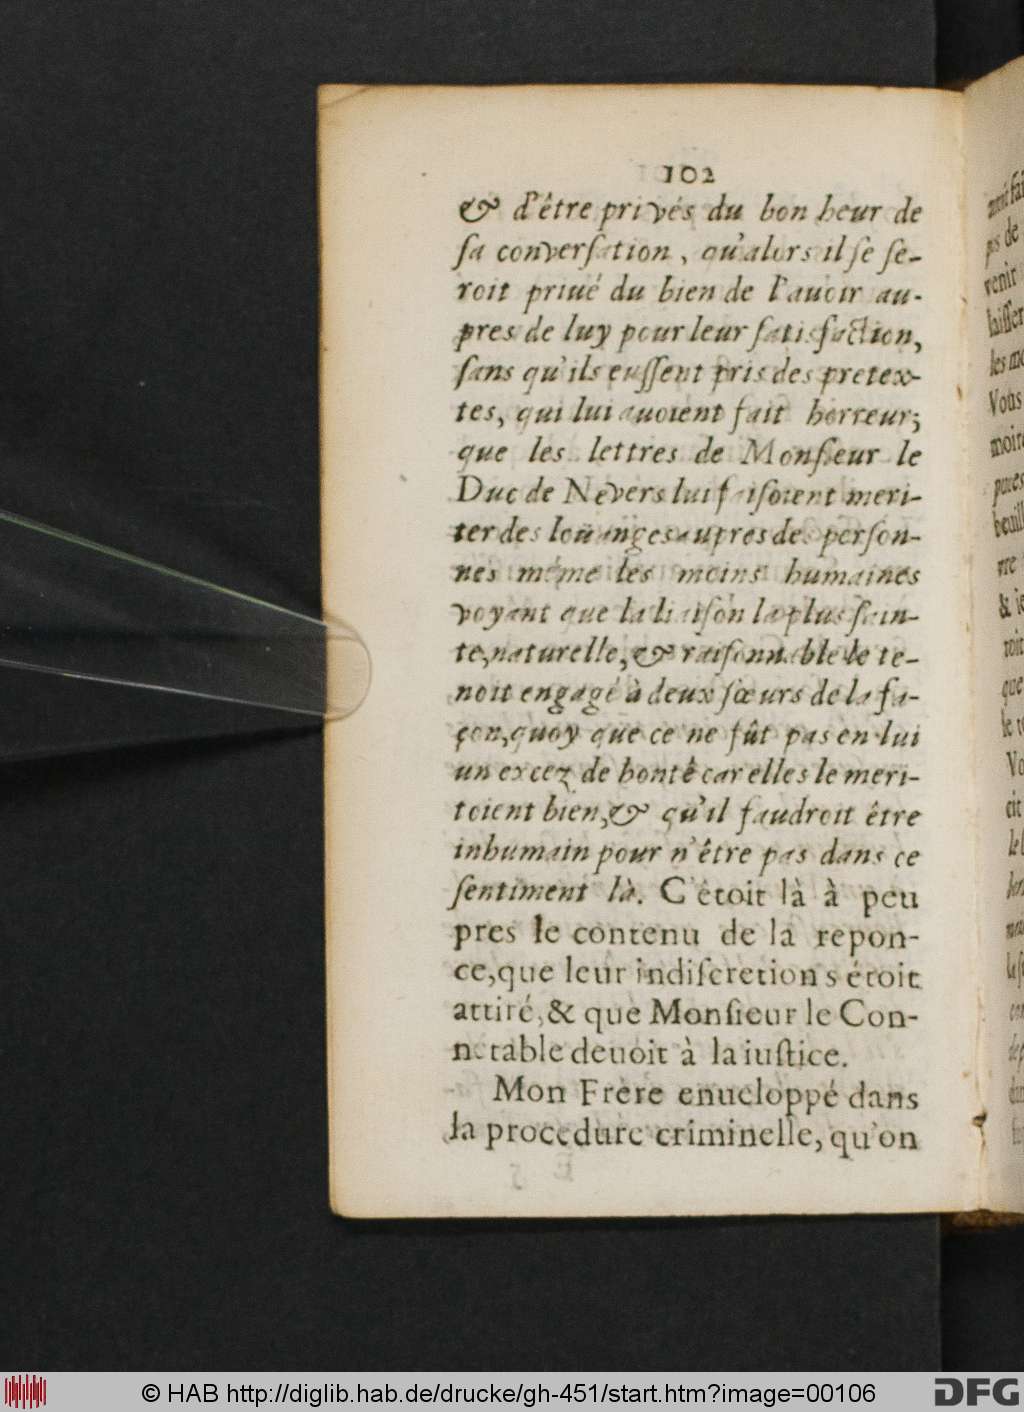 102
& d'être privés du bon heur de
sa conversation, qu'alors il se se-
roit priué du bien de l'auoir au-
pres de luy pour leur satisfaction,
sans qu'ils eussent pris des pretex-
tes, qui lui auoient fait horreur;
que les lettres de Monsieur le
Duc de Nevers lui faisoient meri-
ter des loüanges aupres des person-
nes même les moins humaines
voyant que la liaison la plus sain-
te, naturelle, & raisonnable le te-
noit engagé à deux sœurs de la fa-
çon, quoy que ce ne fût pas en lui
un excez de bonté car elles le meri-
toient bien, & qu'il faudroit être
inhumain pour n'être pas dans ce
sentiment là. C'étoit là à peu
pres le contenu de la repon-
ce, que leur indiscretion s étoit
attiré, & que Monsieur le Con-
netable deuoit à la iustice.
Mon Frere enueloppé dans
la procedure criminelle, qu'on
pas de
venir
laisser
Vous
& ie
que
© HAB http://diglib.hab.de/drucke/gh-451/start.htm?image=00106
DFG